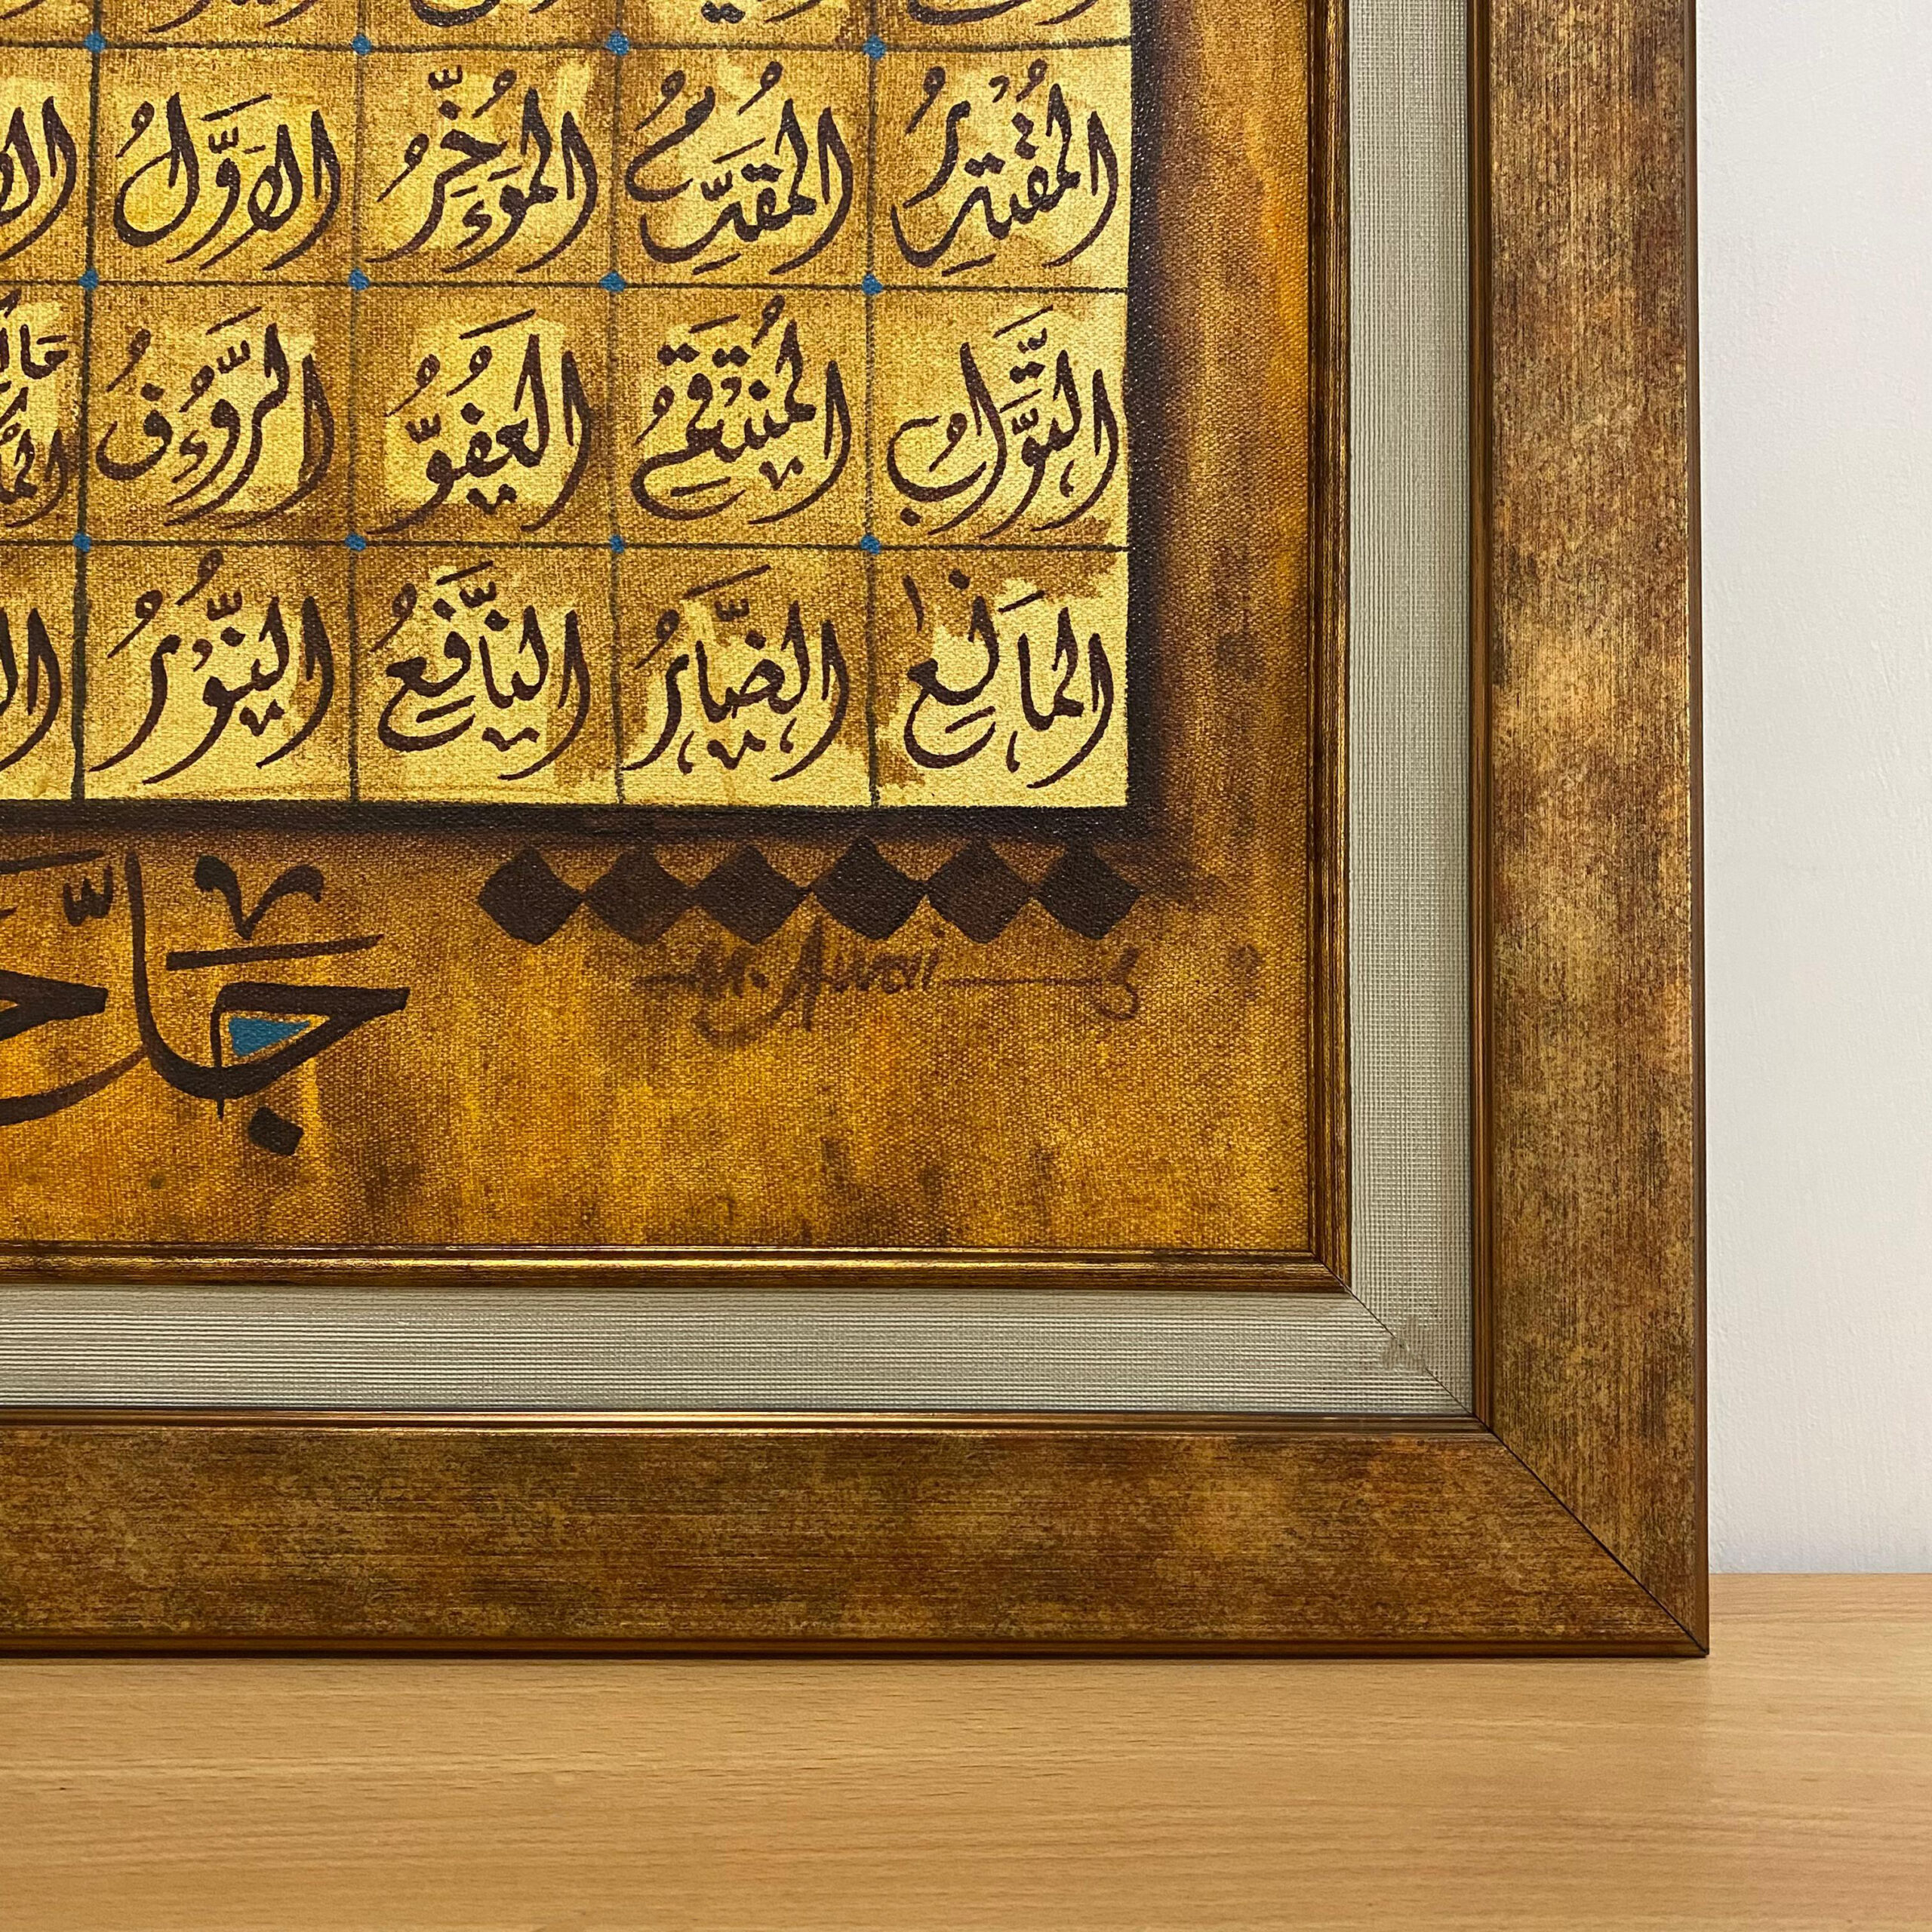 المُقْتَدِرُ المُقَدِّمُ المُؤَخِّرُ الأَوَّلُ
التَّوَّابُ المُنْتَقِمُ العَفُوُّ الرَّؤُوفُ
المَانِعُ الضَّارُّ النَّافِعُ النُّورُ
جَلَّ
M. Awal